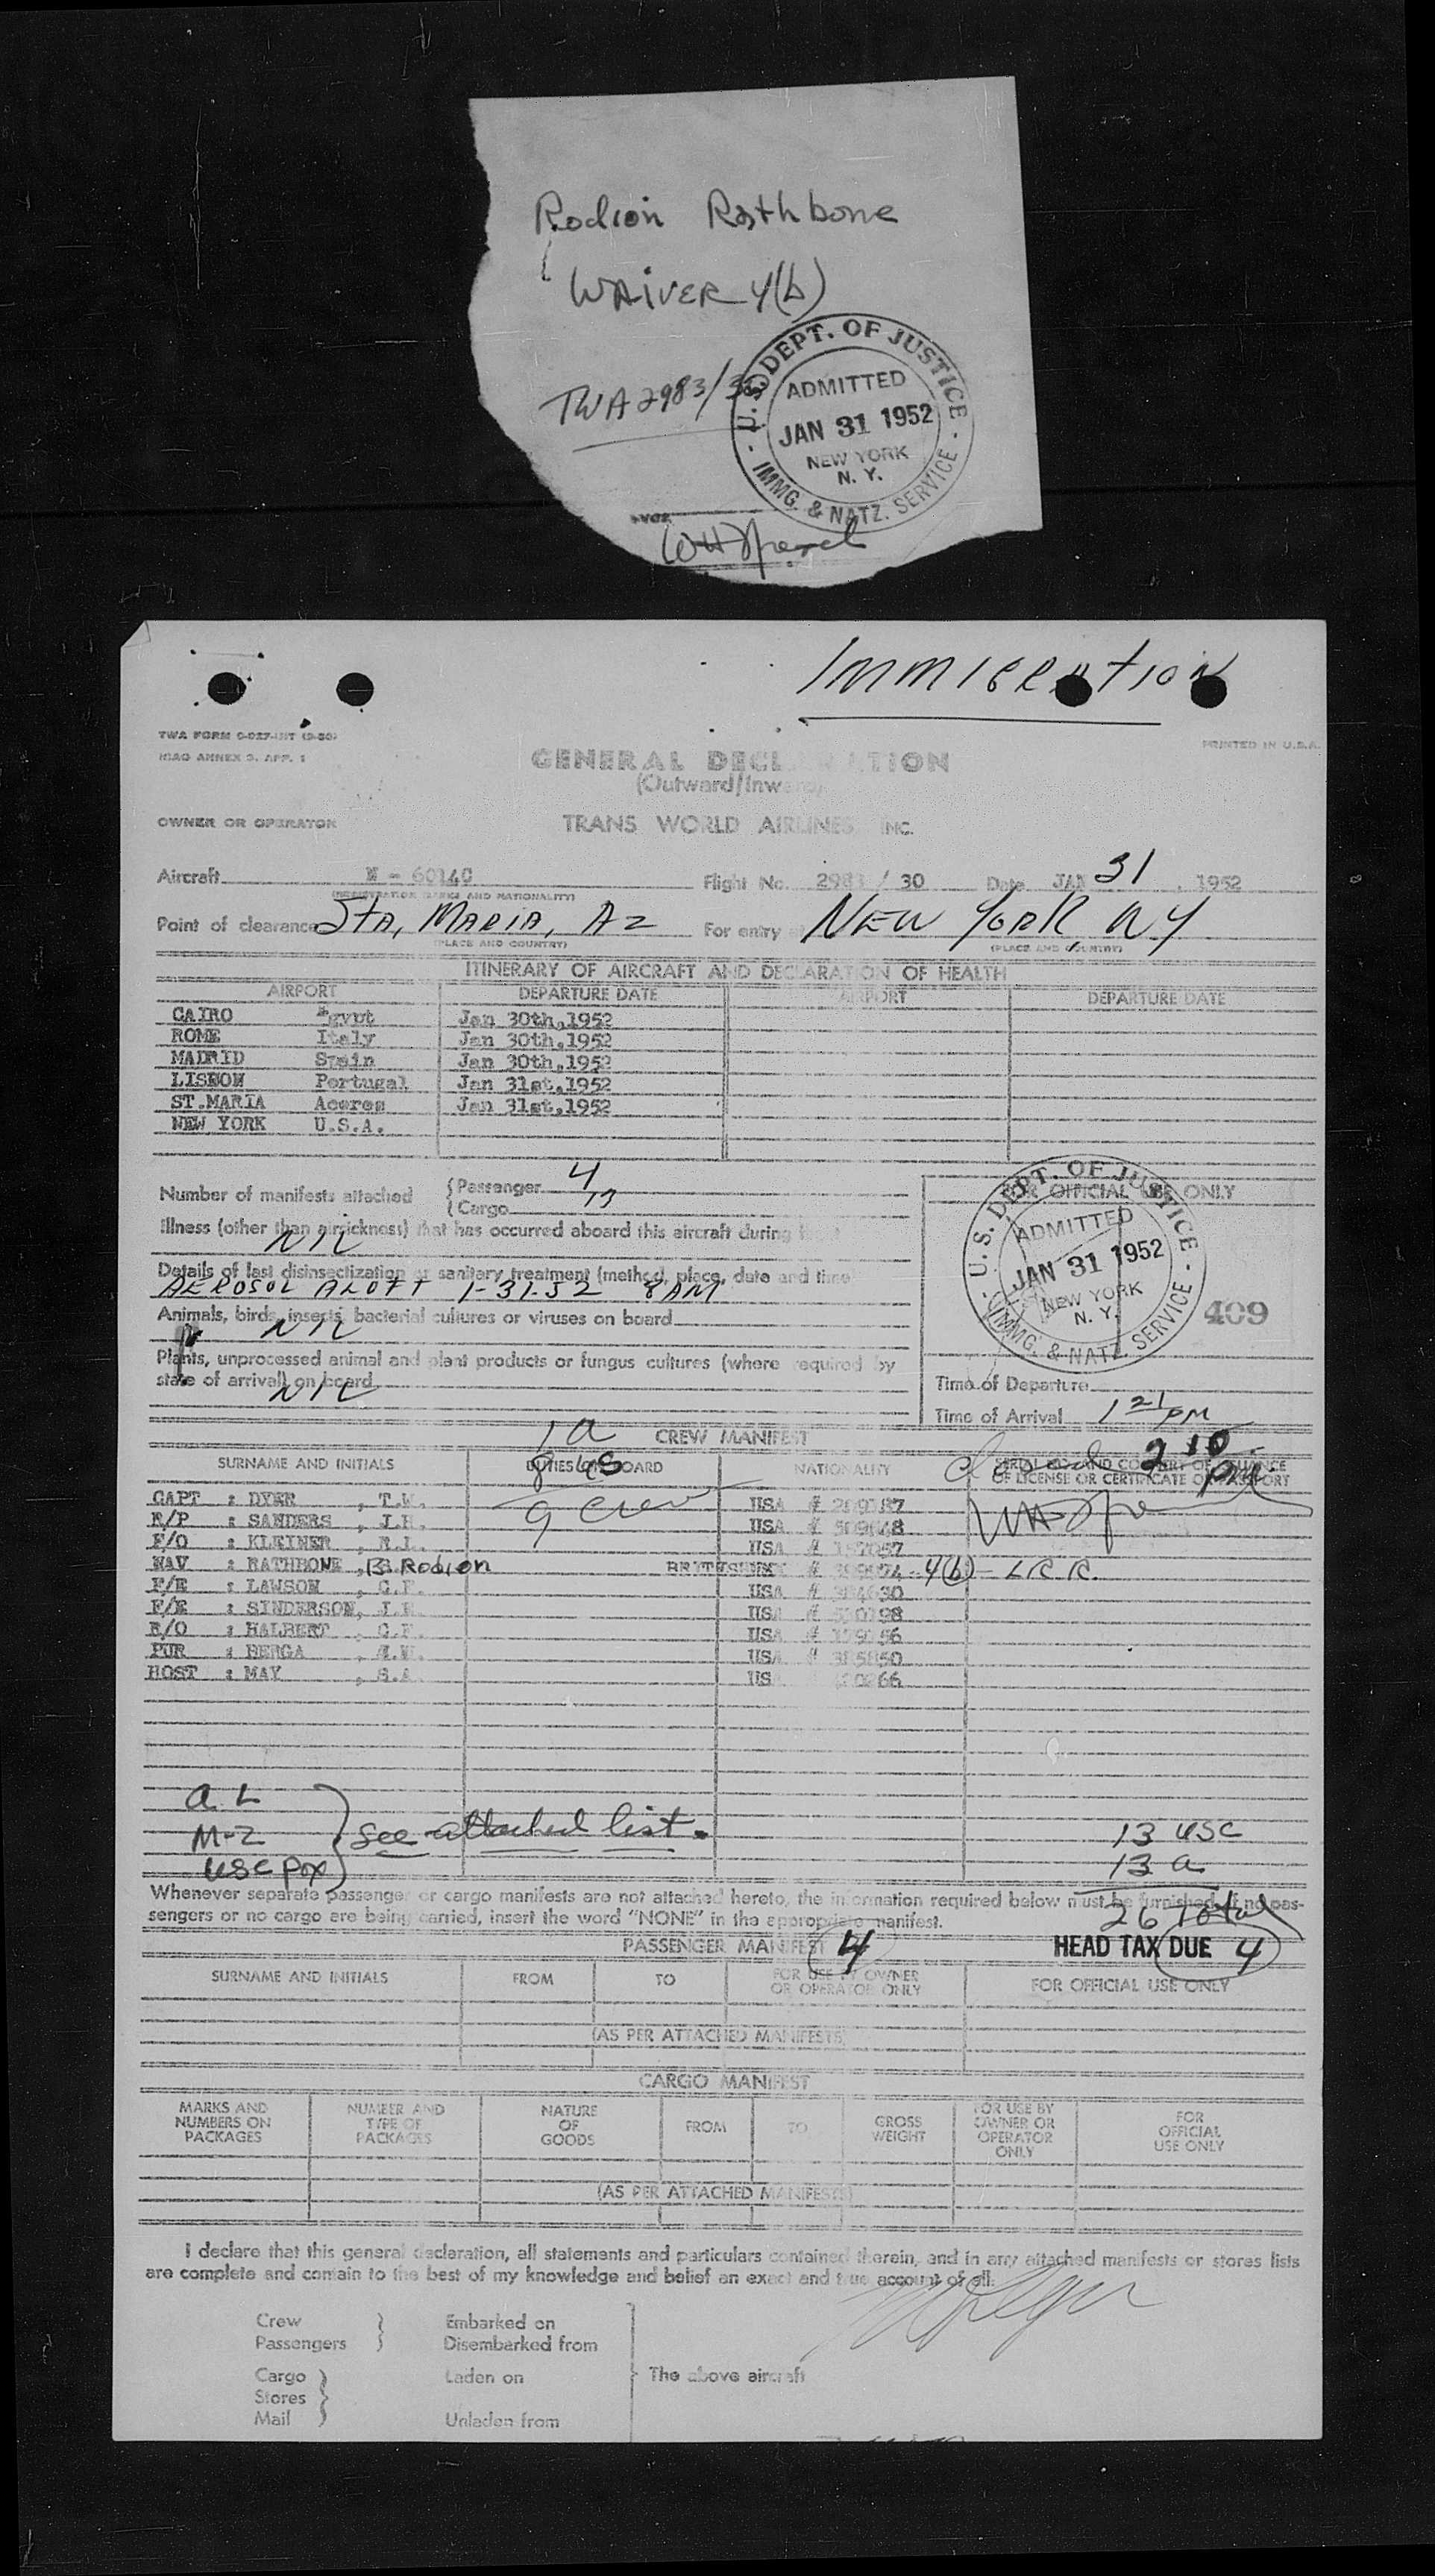 Rodion Rathbone
WAIVER 4(b)
TWA 2983/30
U.S. DEPT. OF JUSTICE
ADMITTED
JAN 31 1952
NEW YORK
N. Y.
IMMG. & NATZ. SERVICE
IMMIGRATION
TWA FORM
ICAO ANNEX 9, APP. 1
PRINTED IN U.S.A.
GENERAL DECL TION
(Outward/Inw
OWNER OR OPERATOR
TRANS WORLD AIRLINES INC.
Aircraft N - 60140 Flight No. 2983 / 30 Date JAN 31, 1952
(REGISTRATION MARKS AND NATIONALITY)
Point of clearance STA, MARIA, AZ For entry NEW YORK NY
(PLACE AND COUNTRY) (PLACE AND COUNTRY)
ITINERARY OF AIRCRAFT AND DECLARATION OF HEALTH
AIRPORT DEPARTURE DATE AIRPORT DEPARTURE DATE
CAIRO Egypt Jan 30th,1952
ROME Italy Jan 30th,1952
MADRID Spain Jan 30th,1952
LISBON Portugal Jan 31st,1952
ST.MARIA Acores Jan 31st,1952
NEW YORK U.S.A.
Number of manifests attached { Passenger 4
{ Cargo 13
Illness (other than airsickness) that has occurred aboard this aircraft during
NIL
Details of last disinsectization or sanitary treatment (method, place, date and time
AEROSOL ALOFT 1-31-52 8AM
Animals, birds, insects, bacterial cultures or viruses on board
NIL
Plants, unprocessed animal and plant products or fungus cultures (where required by
state of arrival) on board
NIL
FOR OFFICIAL USE ONLY
U.S. DEPT. OF JUSTICE
ADMITTED
JAN 31 1952
NEW YORK
N. Y.
IMMG. & NATZ. SERVICE
409
Time of Departure
Time of Arrival 1 21 PM
1 a
CREW MANIFEST
SURNAME AND INITIALS DUTIES ON BOARD NATIONALITY SERIAL NO. AND COUNTRY OF ISSUANCE
OF LICENSE OR CERTIFICATE OR PASSPORT
8 us
9 Crew
2 10 PM
CAPT : DYER , T.W. USA
: SANDERS , J.H. USA
F/O : KLEINER USA
NAV : RATHBONE , B. Rodion BRITISH 4(b)
F/E : LAWSON USA
F/E : SINDERSON, USA
R/O : HALBERT USA
PUR : BERGA USA
HOST : MAY , S.A. US
a L
M-2
usc pox
} See attached list.
13 usc
13 a
26 Total
Whenever separate passenger or cargo manifests are not attached hereto, the information required below must be furnished. If no pas-
sengers or no cargo are being carried, insert the word "NONE" in the appropriate manifest.
PASSENGER MANIFEST 4 HEAD TAX DUE 4
SURNAME AND INITIALS FROM TO FOR USE BY OWNER
OR OPERATOR ONLY FOR OFFICIAL USE ONLY
(AS PER ATTACHED MANIFESTS)
CARGO MANIFEST
MARKS AND
NUMBERS ON
PACKAGES
NUMBER AND
TYPE OF
PACKAGES
NATURE
OF
GOODS
FROM
TO
GROSS
WEIGHT
FOR USE BY
OWNER OR
OPERATOR
ONLY
FOR
OFFICIAL
USE ONLY
(AS PER ATTACHED MANIFESTS)
I declare that this general declaration, all statements and particulars contained therein, and in any attached manifests or stores lists
are complete and contain to the best of my knowledge and belief an exact and true account of all:
Crew } Embarked on
Passengers } Disembarked from
Cargo } Laden on } The above aircraft
Stores }
Mail } Unladen from